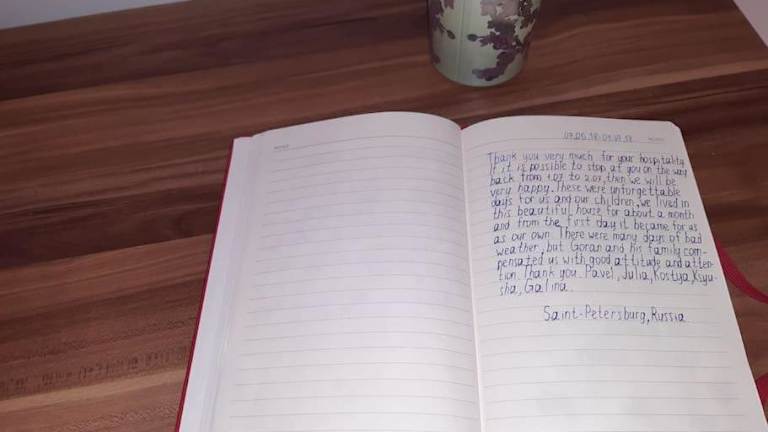 07.06.18-04.07.18
Thank you very much for your hospitality.
If it is possible to stop at you on the way
back from 1.07 to 2.07, then we will be
very happy. These were unforgettable
days for us and our children, we lived in
this beautiful house for about a month
and from the first day it became for us
as our own. There were many days of bad
weather, but Goran and his family com-
pensated us with good attitude and atten-
tion. Thank you. Pavel, Julia, Kostya, Ksyu-
sha, Galina.
Saint-Petersburg, Russia